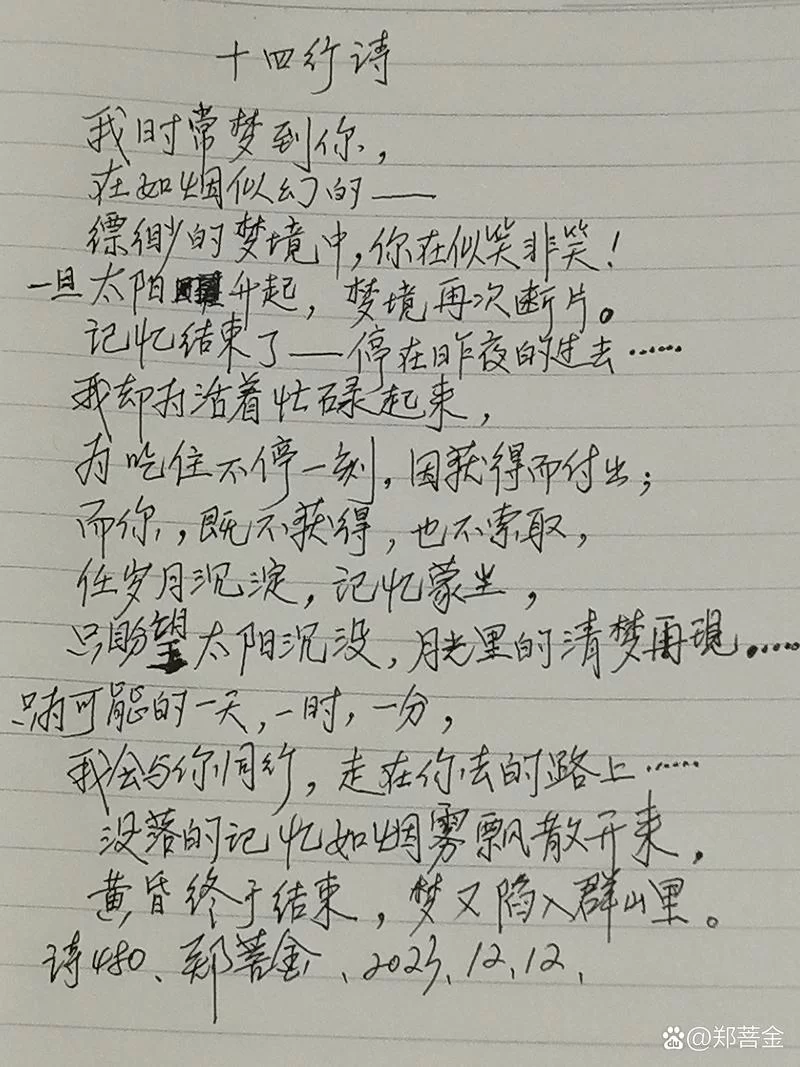 十四行诗
我时常梦到你,
在如烟似幻的——
缥缈的梦境中,你在似笑非笑!
一旦太阳升起,梦境再次断片。
记忆结束了——停在昨夜的过去……
我却为活着忙碌起来,
为吃住不停一刻,因获得而付出;
而你,既不获得,也不索取,
任岁月沉淀,记忆蒙尘,
只盼望太阳沉没,月光里的清梦再现……
只有可能的一天,一时,一分,
我会与你同行,走在你去的路上……
没落的记忆如烟雾飘散开来,
黄昏终于结束,梦又陷入群山里。
诗480、郑菩金、2023、12、12、
Baidu @郑菩金